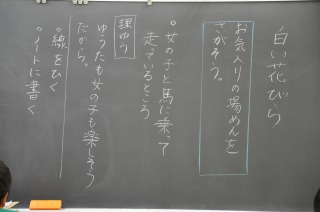 白い花びら
お気入りの場めんを
さがそう。
。女の子と馬に乗って
走ているところ
理ゆう
ゆうたも女の子も楽しそう
だから。
。線をひく
ノートに書く